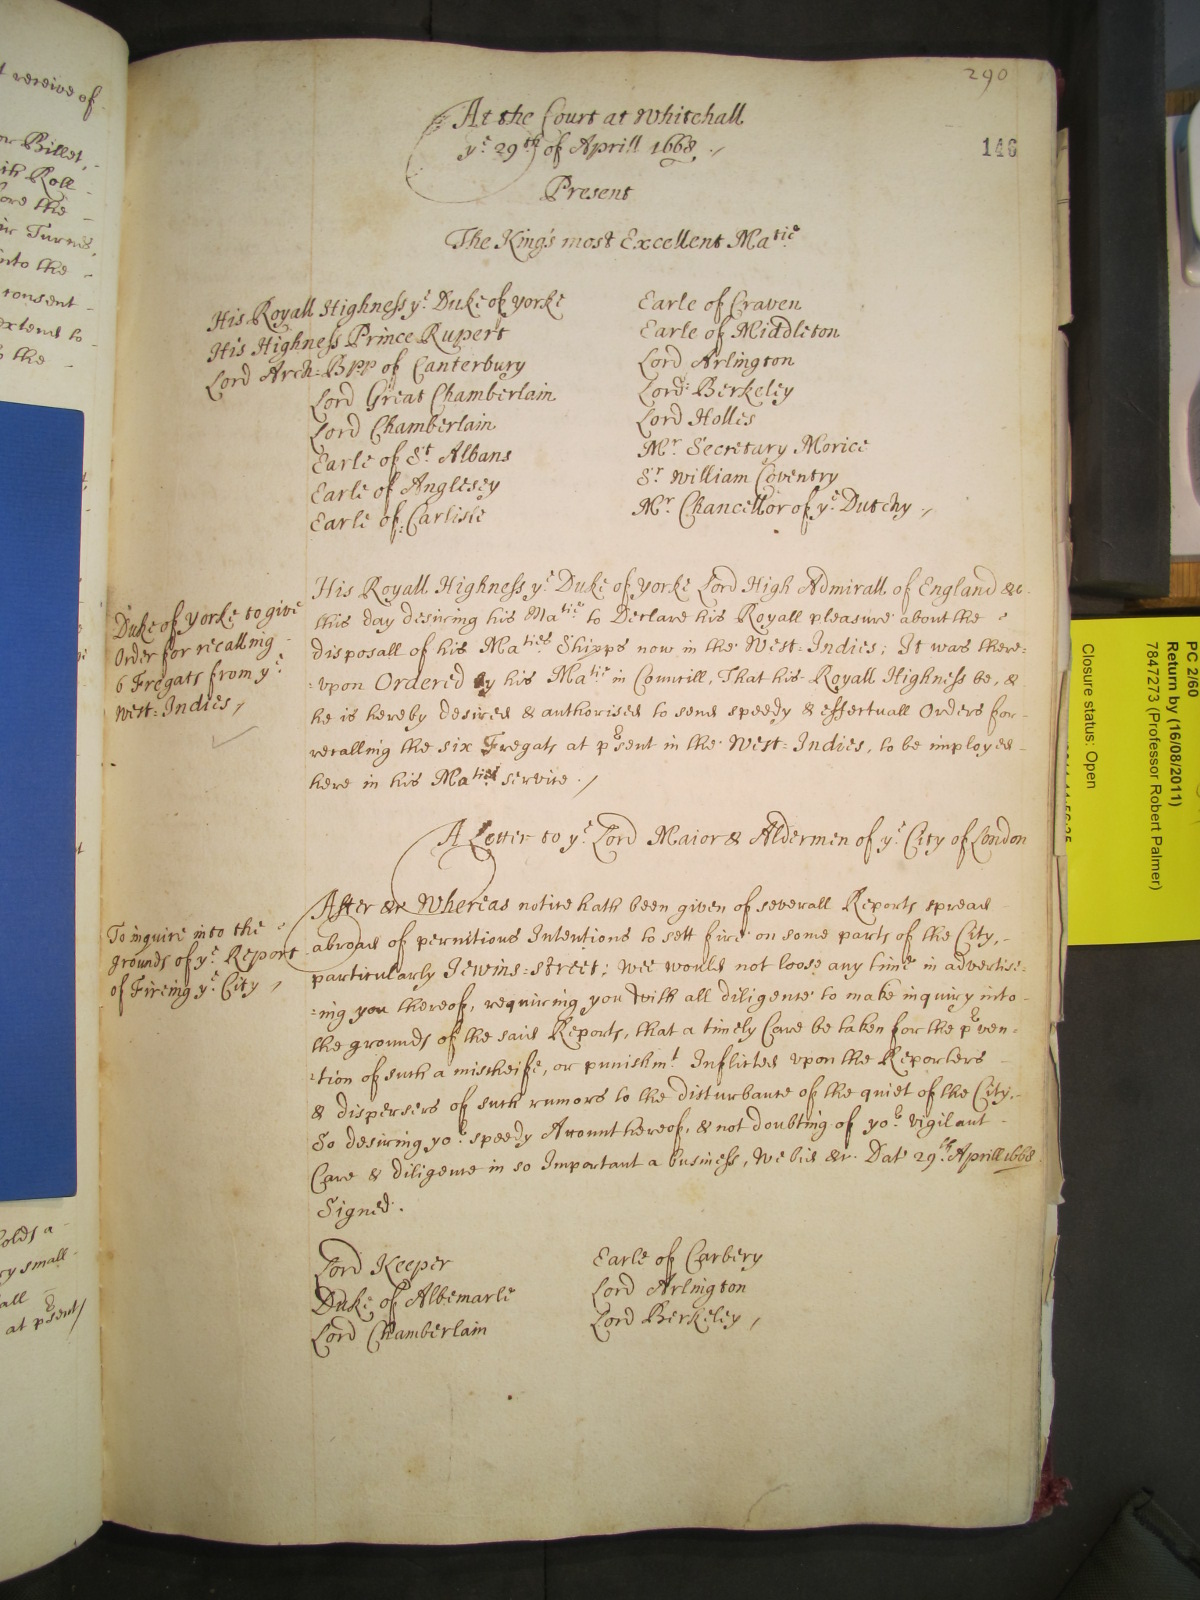 290
146
At the Court at Whitehall
yͤ 29th of Aprill 1668
Present
The King's most Excellent Matie
His Royall Highness yͤ Duke of yorke
His Highness Prince Rupert
Lord Arch-Bpp of Canterbury
Lord Great Chamberlain
Lord Chamberlain
Earle of St Albans
Earle of Anglesey
Earle of Carlisle
Earle of Craven
Earle of Middleton
Lord Arlington
Lord Berkeley
Lord Holles
Mr Secretary Morice
Sr William Coventry
Mr Chancellor of yͤ Dutchy
Duke of Yorke to give
Order for recalling
6 Fregats from yͤ
West-Indies,
His Royall Highness yͤ Duke of yorke Lord High Admirall of England &c
this day desiring his Matie to Declare his Royall pleasure about the
disposall of his Maties Shipps now in the West-Indies; It was there=
=upon Ordered by his Matie in Councill, That his Royall Highness be, &
he is hereby desired & authorised to send speedy & effectuall Orders for
recalling the six Fregats at psent in the West=Indies, to be imployed
here in his Maties service.
A Letter to yͤ Lord Maior & Aldermen of yͤ City of London
To inquire into the
grounds of yͤ Report
of Fireing yͤ City,
After &c Whereas notice hath been given of severall Reports spread
abroad of pernitious Intentions to sett fire on some parts of the City,
particularly Jewins=street; wee would not loose any time in advertise=
=ing you thereof, requiring you with all diligence to make inquiry into
the grounds of the said Reports, that a timely Care be taken for the pven=
=tion of such a mischeife, or punishmt Inflicted upon the Reporters
& dispersers of such rumors to the disturbance of the quiet of the City.
So desiring yor speedy Account hereof, & not doubting of yor vigilant
Care & diligence in so Important a business, We bid &c. Dat 29th Aprill 1668
Signed.
Lord Keeper
Duke of Albemarle
Lord Chamberlain
Earle of Carbery
Lord Arlington
Lord Berkeley,
receive of
Billet,
Roll
the
Turnes,
into the
consent
extend to
the
a
small
all
at psent/
PC 2/60
Return by (16/08/2011)
7847273 (Professor Robert Palmer)
Closure status: Open